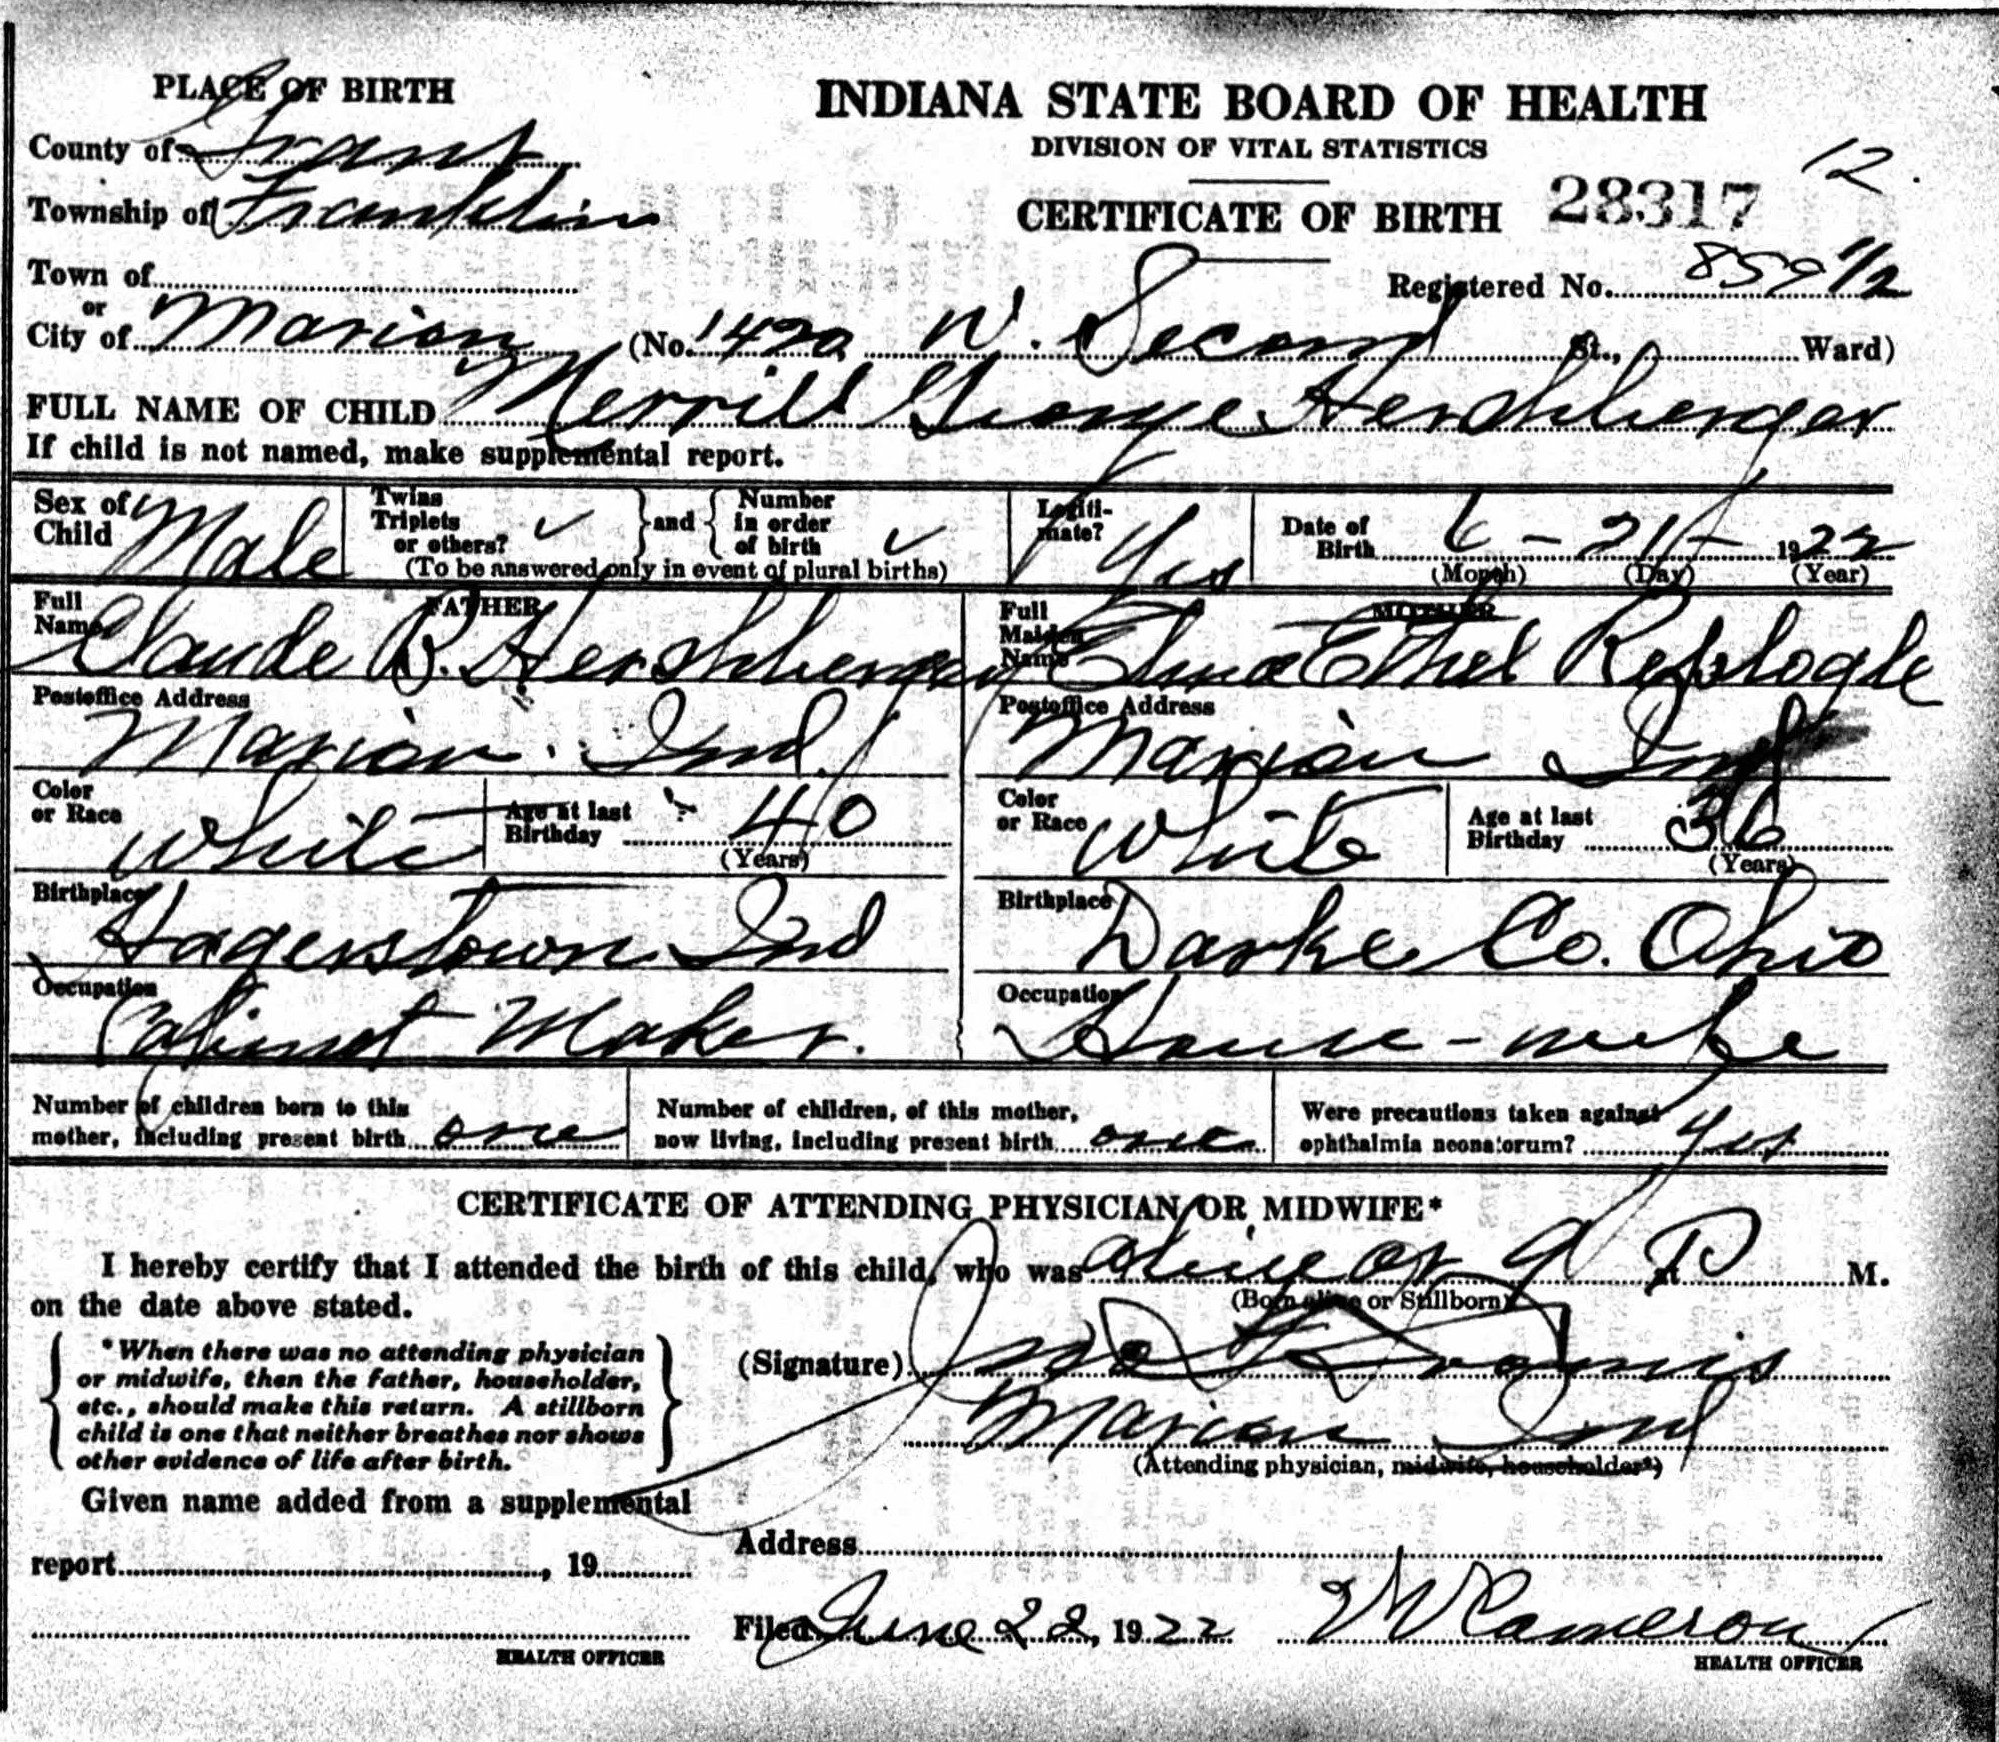 PLACE OF BIRTH
County of Grant
Township of Franklin
Town of
or
City of Marion
INDIANA STATE BOARD OF HEALTH
DIVISION OF VITAL STATISTICS
12.
CERTIFICATE OF BIRTH 28317
Registered No. 859 1/2
(No. 1420 W. Second St., Ward)
FULL NAME OF CHILD Merrill George Hershberger
If child is not named, make supplemental report.
Sex of Child Male
Twins Triplets or others? ✓ and Number in order of birth ✓
(To be answered only in event of plural births)
Legitimate? Yes
Date of Birth 6 - 21 - 1922
(Month) (Day) (Year)
FATHER
Full Name Claude B. Hershberger
Postoffice Address
Marion. Ind.
Color or Race White
Age at last Birthday 40
(Years)
Birthplace
Hagerstown Ind
Occupation
Cabinet Maker.
MOTHER
Full Maiden Name Elma Ethel Replogle
Postoffice Address
Marion Ind
Color or Race White
Age at last Birthday 36
(Years)
Birthplace
Darke Co. Ohio
Occupation
House-wife
Number of children born to this
mother, including present birth one
Number of children, of this mother,
now living, including present birth one
Were precautions taken against
ophthalmia neonatorum? Yes
CERTIFICATE OF ATTENDING PHYSICIAN OR MIDWIFE*
I hereby certify that I attended the birth of this child, who was alive at 9 P M.
(Born alive or Stillborn)
on the date above stated.
*When there was no attending physician
or midwife, then the father, householder,
etc., should make this return. A stillborn
child is one that neither breathes nor shows
other evidence of life after birth.
Given name added from a supplemental
report , 19
HEALTH OFFICER
(Signature)
Marion Ind
(Attending physician, midwife, householder*)
Address
Filed June 22, 1922 Cameron
HEALTH OFFICER